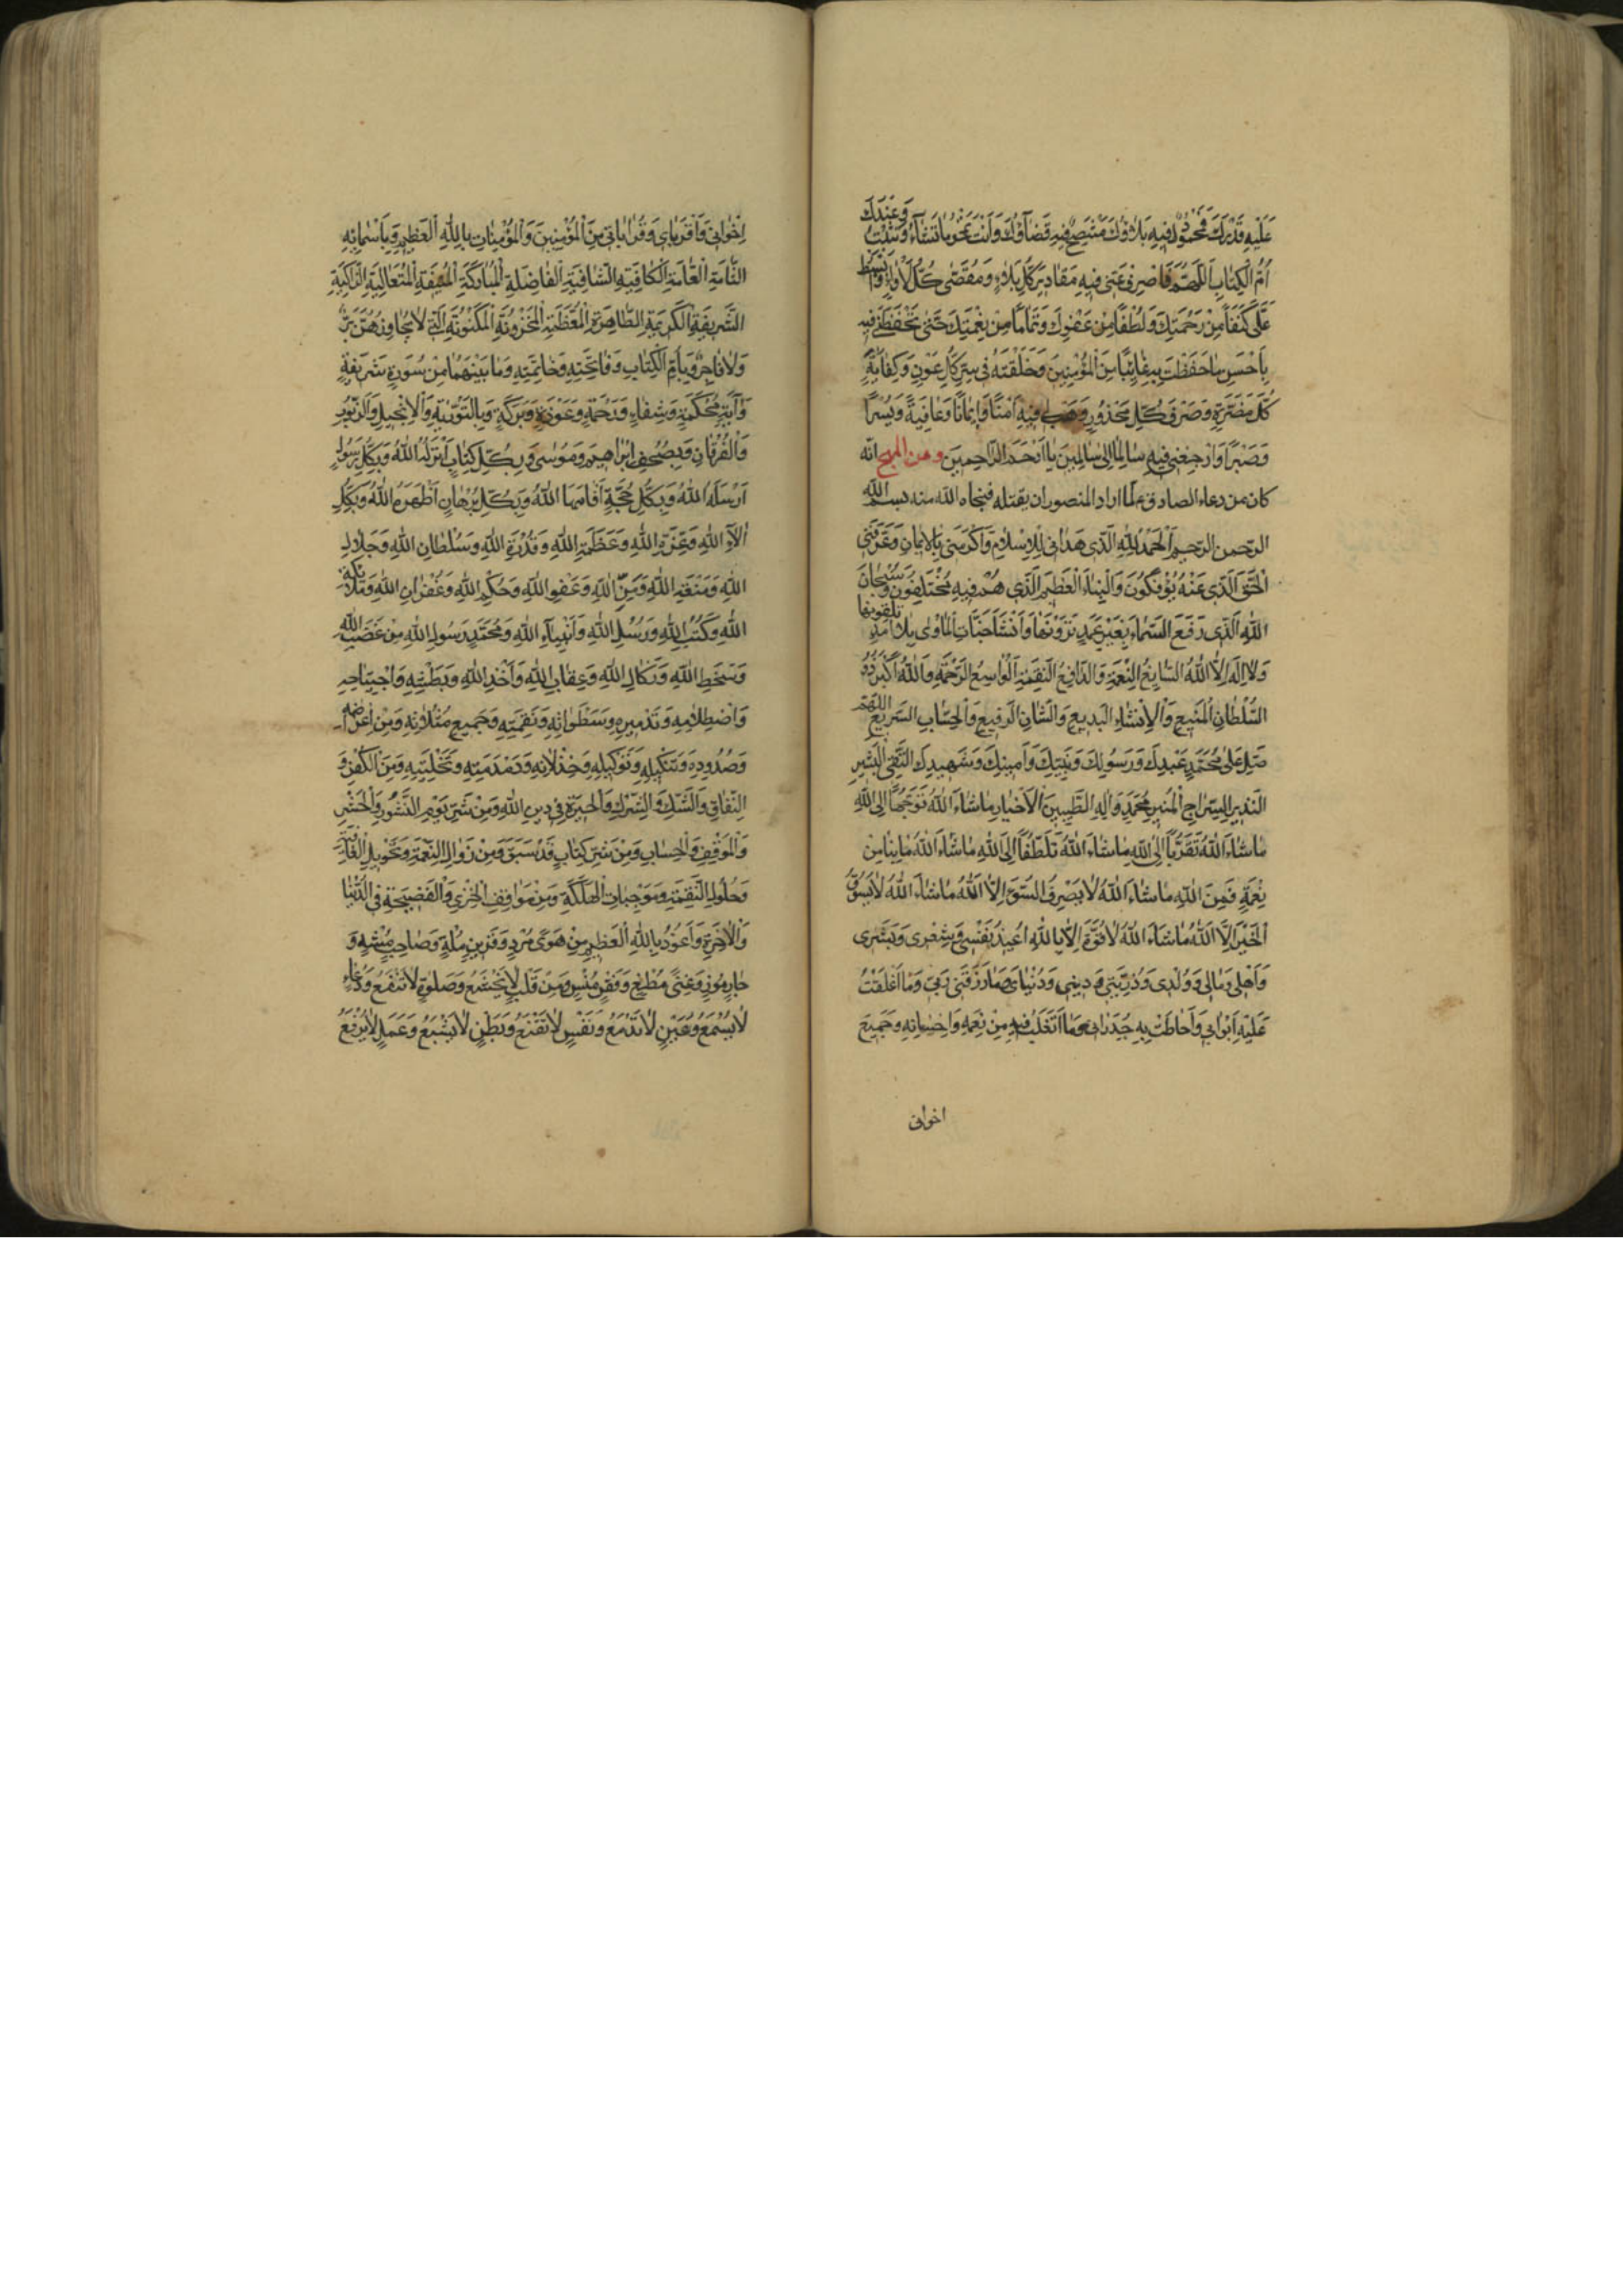 عَلَيْهِ قَدْرَكَ فَمَحْمُودٌ فِيهِ بَلَاؤُكَ مُتَّضِحٌ فِيهِ قَضَاؤُكَ وَأَنْتَ تَمْحُو مَا تَشَاءُ وَتُثْبِتُ وَعِنْدَكَ
اُمُّ الْكِتَابِ اَللّٰهُمَّ فَاصْرِفْ عَنِّي فِيهِ مَقَادِيرَ كُلِّ بَلَاءٍ وَمُقْتَضٰى كُلِّ لَأْوَاءٍ وَابْسُطْ
عَلَيَّ كَنَفًا مِنْ رَحْمَتِكَ وَلُطْفًا مِنْ عَفْوِكَ وَتَمَامًا مِنْ نِعْمَتِكَ حَتّٰى تَحْفَظَنِي فِيهِ
بِأَحْسَنِ مَا حَفِظْتَ بِهِ غَائِبًا مِنَ الْمُؤْمِنِينَ وَخَلَّفْتَهُ فِي سِتْرِ كُلِّ عَوْرَةٍ وَكِفَايَةِ
كُلِّ مَضَرَّةٍ وَصَرْفِ كُلِّ مَحْذُورٍ وَهَبْ لِي فِيهِ اَمْنًا وَإِيمَانًا وَعَافِيَةً وَيُسْرًا
وَصَبْرًا وَارْجِعْنِي فِيهِ سَالِمًا إِلٰى سَالِمِينَ يَا أَرْحَمَ الرَّاحِمِينَ ومن المهج انّه
كان من دعاء الصادق ع لمّا اراد المنصور ان يقتله فنجاه الله منه بسم الله
الرّحمن الرّحيم اَلْحَمْدُ لِلّٰهِ الَّذِي هَدَانِي لِلْإِسْلَامِ وَأَكْرَمَنِي بِالْإِيمَانِ وَعَرَّفَنِي
الْحَقَّ الَّذِي عَنْهُ يُؤْفَكُونَ وَالنَّبَإَ الْعَظِيمَ الَّذِي هُمْ فِيهِ مُخْتَلِفُونَ وَسُبْحَانَ
اللّٰهِ الَّذِي رَفَعَ السَّمَاءَ بِغَيْرِ عَمَدٍ تَرَوْنَهَا وَأَنْشَأَ جَنَّاتِ الْمَأْوٰى بِلَا أَمَدٍ تلقونها
وَلَا إِلٰهَ إِلَّا اللّٰهُ السَّابِغُ النِّعْمَةِ الدَّافِعُ النِّقْمَةِ الْوَاسِعُ الرَّحْمَةِ وَاللّٰهُ أَكْبَرُ ذُو
السُّلْطَانِ الْمَنِيعِ وَالْإِنْشَاءِ الْبَدِيعِ وَالشَّانِ الرَّفِيعِ وَالْحِسَابِ السَّرِيعِ اللّٰهُمَّ
صَلِّ عَلٰى مُحَمَّدٍ عَبْدِكَ وَرَسُولِكَ وَنَبِيِّكَ وَأَمِينِكَ وَشَهِيدِكَ التَّقِيِّ الْبَشِيرِ
النَّذِيرِ السِّرَاجِ الْمُنِيرِ مُحَمَّدٍ وَآلِهِ الطَّيِّبِينَ الْأَخْيَارِ مَا شَاءَ اللّٰهُ تَوَجُّهًا إِلَى اللّٰهِ
مَا شَاءَ اللّٰهُ تَقَرُّبًا إِلَى اللّٰهِ مَا شَاءَ اللّٰهُ تَلَطُّفًا إِلَى اللّٰهِ مَا شَاءَ اللّٰهُ مَا بِنَا مِنْ
نِعْمَةٍ فَمِنَ اللّٰهِ مَا شَاءَ اللّٰهُ لَا يَصْرِفُ السُّوءَ إِلَّا اللّٰهُ مَا شَاءَ اللّٰهُ لَا يَسُوقُ
الْخَيْرَ إِلَّا اللّٰهُ مَا شَاءَ اللّٰهُ لَا قُوَّةَ إِلَّا بِاللّٰهِ اُعِيذُ نَفْسِي وَشَعْرِي وَبَشَرِي
وَأَهْلِي وَمَالِي وَوُلْدِي وَذُرِّيَّتِي وَدِينِي وَدُنْيَايَ وَمَا رَزَقَنِي رَبِّي وَمَا أُغْلِقَتْ
عَلَيْهِ أَبْوَابِي وَأَحَاطَتْ بِهِ جُدْرَانِي وَمَا أَتَقَلَّبُ فِيهِ مِنْ نِعَمِهِ وَإِحْسَانِهِ وَجَمِيعَ
اخوانى
إِخْوَانِي وَأَقْرِبَائِي وَقَرَابَاتِي مِنَ الْمُؤْمِنِينَ وَالْمُؤْمِنَاتِ بِاللّٰهِ الْعَظِيمِ وَبِأَسْمَائِهِ
التَّامَّةِ الْعَامَّةِ الْكَافِيَةِ الشَّافِيَةِ الْفَاضِلَةِ الْمُبَارَكَةِ الْمُنِيفَةِ الْمُتَعَالِيَةِ الزَّاكِيَةِ
الشَّرِيفَةِ الْكَرِيمَةِ الطَّاهِرَةِ الْمُعَظَّمَةِ الْمَخْزُونَةِ الْمَكْنُونَةِ الَّتِي لَا يُجَاوِزُهُنَّ بَرٌّ
وَلَا فَاجِرٌ وَبِأُمِّ الْكِتَابِ وَفَاتِحَتِهِ وَخَاتِمَتِهِ وَمَا بَيْنَهُمَا مِنْ سُورَةٍ شَرِيفَةٍ
وَآيَةٍ مُحْكَمَةٍ وَشِفَاءٍ وَرَحْمَةٍ وَعَوْذَةٍ وَبَرَكَةٍ وَبِالتَّوْرٰيةِ وَالْإِنْجِيلِ وَالزَّبُورِ
وَالْفُرْقَانِ وَبِصُحُفِ إِبْرَاهِيمَ وَمُوسٰى وَبِكُلِّ كِتَابٍ أَنْزَلَهُ اللّٰهُ وَبِكُلِّ رَسُولٍ
أَرْسَلَهُ اللّٰهُ وَبِكُلِّ حُجَّةٍ أَقَامَهَا اللّٰهُ وَبِكُلِّ بُرْهَانٍ أَظْهَرَهُ اللّٰهُ وَبِكُلِّ
آلَاءِ اللّٰهِ وَعِزَّةِ اللّٰهِ وَعَظَمَةِ اللّٰهِ وَقُدْرَةِ اللّٰهِ وَسُلْطَانِ اللّٰهِ وَجَلَالِ
اللّٰهِ وَمَنَعَةِ اللّٰهِ وَمَنِّ اللّٰهِ وَعَفْوِ اللّٰهِ وَحُكْمِ اللّٰهِ وَغُفْرَانِ اللّٰهِ وَمَلَائِكَةِ
اللّٰهِ وَكُتُبِ اللّٰهِ وَرُسُلِ اللّٰهِ وَأَنْبِيَاءِ اللّٰهِ وَمُحَمَّدٍ رَسُولِ اللّٰهِ مِنْ غَضَبِ اللّٰهِ
وَسَخَطِ اللّٰهِ وَنَكَالِ اللّٰهِ وَعِقَابِ اللّٰهِ وَأَخْذِ اللّٰهِ وَبَطْشِهِ وَاجْتِيَاحِهِ
وَاصْطِلَامِهِ وَتَدْمِيرِهِ وَسَطَوَاتِهِ وَنِقْمَتِهِ وَجَمِيعِ مَثُلَاتِهِ وَمِنْ إِعْرَاضِهِ
وَصُدُودِهِ وَتَنْكِيلِهِ وَتَوْكِيلِهِ وَخِذْلَانِهِ وَدَمْدَمَتِهِ وَتَخْلِيَتِهِ وَمِنَ الْكُفْرِ وَ
النِّفَاقِ وَالشَّكِّ وَالشِّرْكِ وَالْحَيْرَةِ فِي دِينِ اللّٰهِ وَمِنْ شَرِّ يَوْمِ النُّشُورِ وَالْحَشْرِ
وَالْمَوْقِفِ وَالْحِسَابِ وَمِنْ شَرِّ كِتَابٍ قَدْ سَبَقَ وَمِنْ زَوَالِ النِّعْمَةِ وَتَحْوِيلِ الْعَافِيَةِ
وَحُلُولِ النِّقْمَةِ وَمُوجِبَاتِ الْهَلَكَةِ وَمِنْ مَوَاقِفِ الْخِزْيِ وَالْفَضِيحَةِ فِي الدُّنْيَا
وَالْآخِرَةِ وَأَعُوذُ بِاللّٰهِ الْعَظِيمِ مِنْ هَوًى مُرْدٍ وَقَرِينٍ مُلْهٍ وَصَاحِبٍ مُسْهٍ وَ
جَارٍ مُوذٍ وَغِنًى مُطْغٍ وَفَقْرٍ مُنْسٍ وَمِنْ قَلْبٍ لَا يَخْشَعُ وَصَلٰوةٍ لَا تَنْفَعُ وَدُعَاءٍ
لَا يُسْمَعُ وَعَيْنٍ لَا تَدْمَعُ وَنَفْسٍ لَا تَقْنَعُ وَبَطْنٍ لَا يَشْبَعُ وَعَمَلٍ لَا يُرْفَعُ